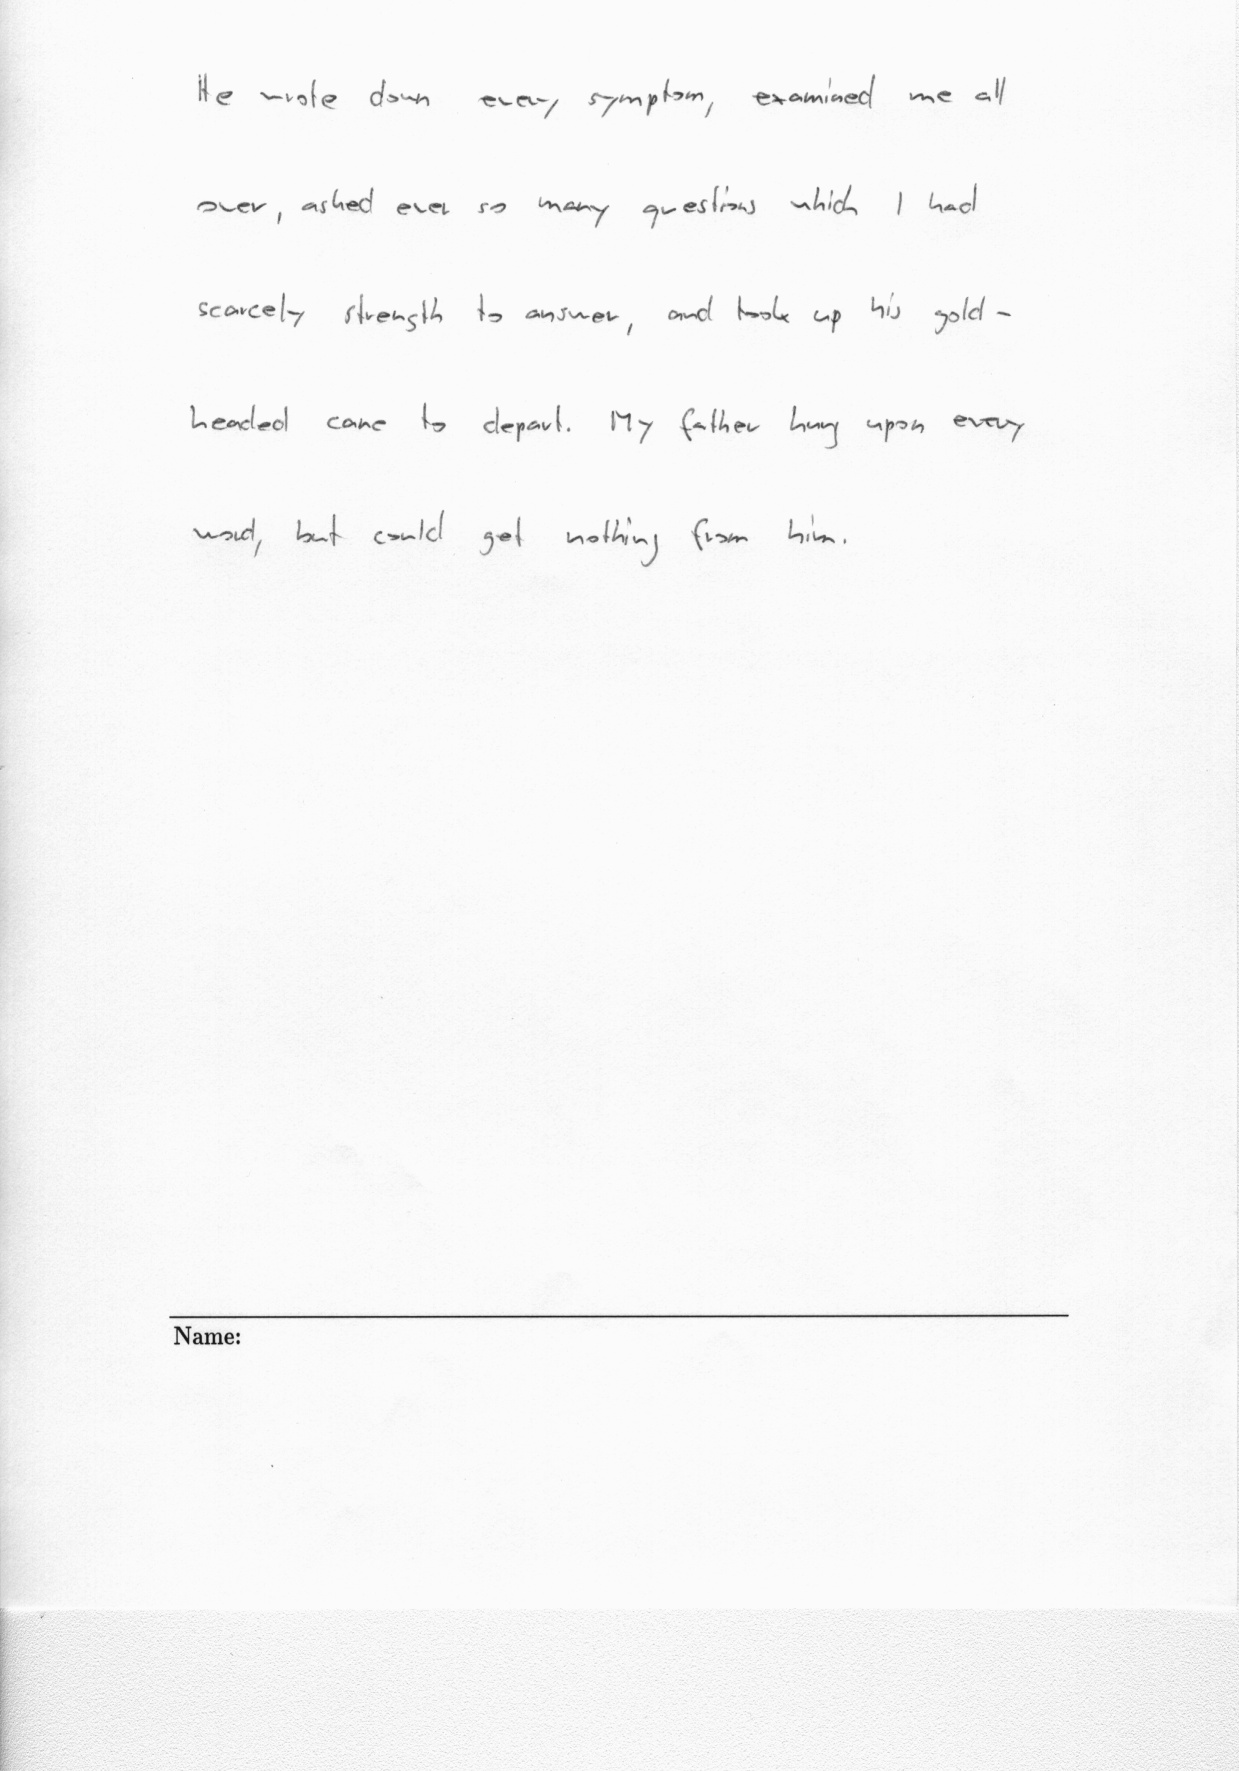 He wrote down every symptom, examined me all
over, asked ever so many questions which I had
scarcely strength to answer, and took up his gold-
headed cane to depart. My father hung upon every
word, but could get nothing from him.
Name: